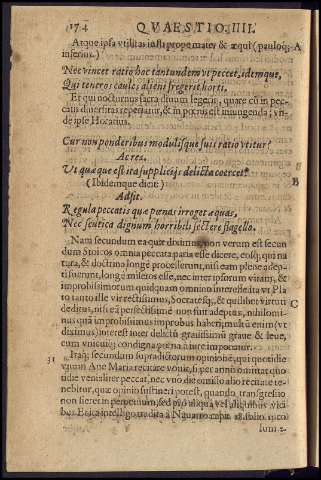 174 QVAESTIO IIII.
Atque ipsa vtilitas iusti prope mater & æqui (pauloq; A
inferius.)
Nec vincet ratio hoc tantundem vt peccet, idemque,
Qui teneros caules alieni fregerit horti.
Et qui nocturnus sacra diuum legerit, quare cū in pec-
catis diuersitas reperiatur, & in pœnis est iniungenda; vn-
de ipse Horatius.
Cur non ponderibus modulisque suis ratio vtitur?
Ac res.
Vt quæque est ita supplicijs delicta coercet?
(Ibidemque dicit) B
Adsit.
Regula peccatis quæ pœnas irroget æquas,
Nec scutica dignum horribili sectere flagello.
Nam secundum ea quæ diximus, non verum est secun
dum Stoicos omnia peccata paria esse dicere, eosq; qui na
tura, & doctrina longè processerunt, nisi eam plene adep-
ti fuerunt, longè miseros esse, nec inter ipsorum vitam, &
improbissimorum quidquam omnino interesse
to tanto ille vir rectissimus, Socratesq; & quilibet virtuti
deditus, nisi eā perfectissimè non fuit adeptus, nihilomi- C
nus quā improbissimus probus haberi, multū enim (vt
diximus) interest inter delicta grauissima graue & leue,
cum vnicuiq; condigna pœna iure imponatur.
31 Itaq; secundum supradictorum opinionē, qui quotidie
vnum Aue Maria recitare vouit, si per annū omittat quo
tidie venialiter peccat, nec vno die omisso alio recitare te-
nebitur, quæ opinio sustineri potest, quando transgressio
non fieret in perpetuum, sed pro aliqua vel aliquibus vici
bus
lum 2.